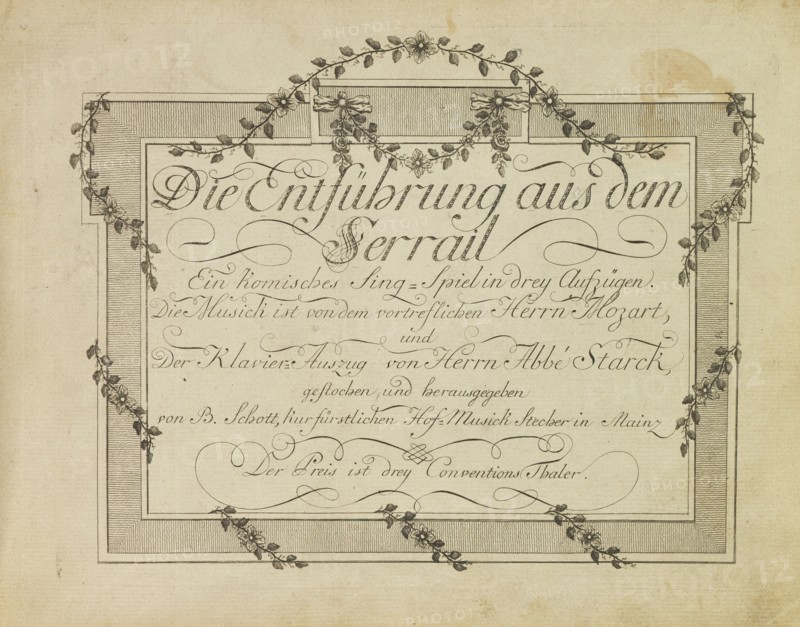 Die Entführung aus dem
Serrail
Ein komisches Sing=Spiel in drey Aufzügen.
Die Musick ist von dem vortreflichen Herrn Mozart,
und
Der Klavier=Auszug von Herrn Abbé Starck,
gestochen und herausgegeben
von B. Schott, kurfürstlichen Hof=Musick Stecher in Mainz
Der Preis ist drey Conventions Thaler.
PHOTO12